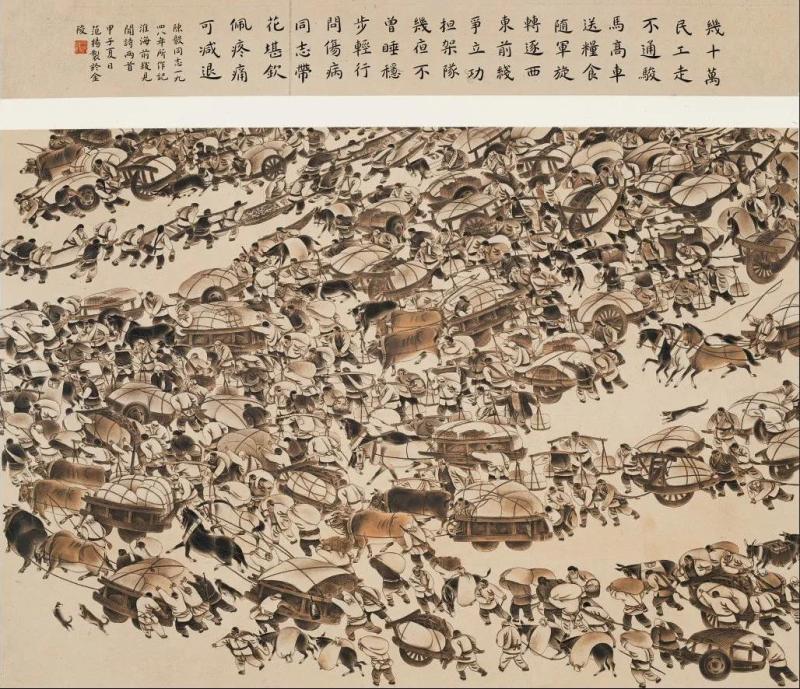 幾十萬
民工走
不通駿
馬高車
送糧食
隨軍旋
轉逐西
東前綫
爭立功
担架隊
幾夜不
曾睡穩
步輕行
問傷病
同志帶
花堪欽
佩疼痛
可減退
陳毅同志一九
四八年所作記
淮海前綫見
聞詩兩首
甲子夏日
范揚製於金
陵